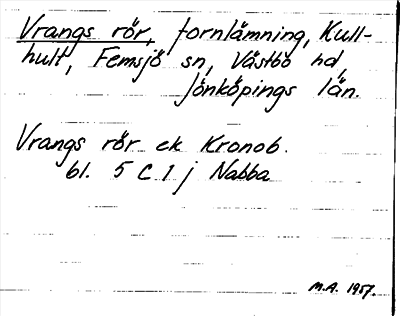 Vrangs rör, fornlämning, Kull-
hult, Femsjö sn, Västbo hd,
Jönköpings län.
Vrangs rör ek Kronob.
bl. 5 C 1 j Nabba
M.A. 1957.